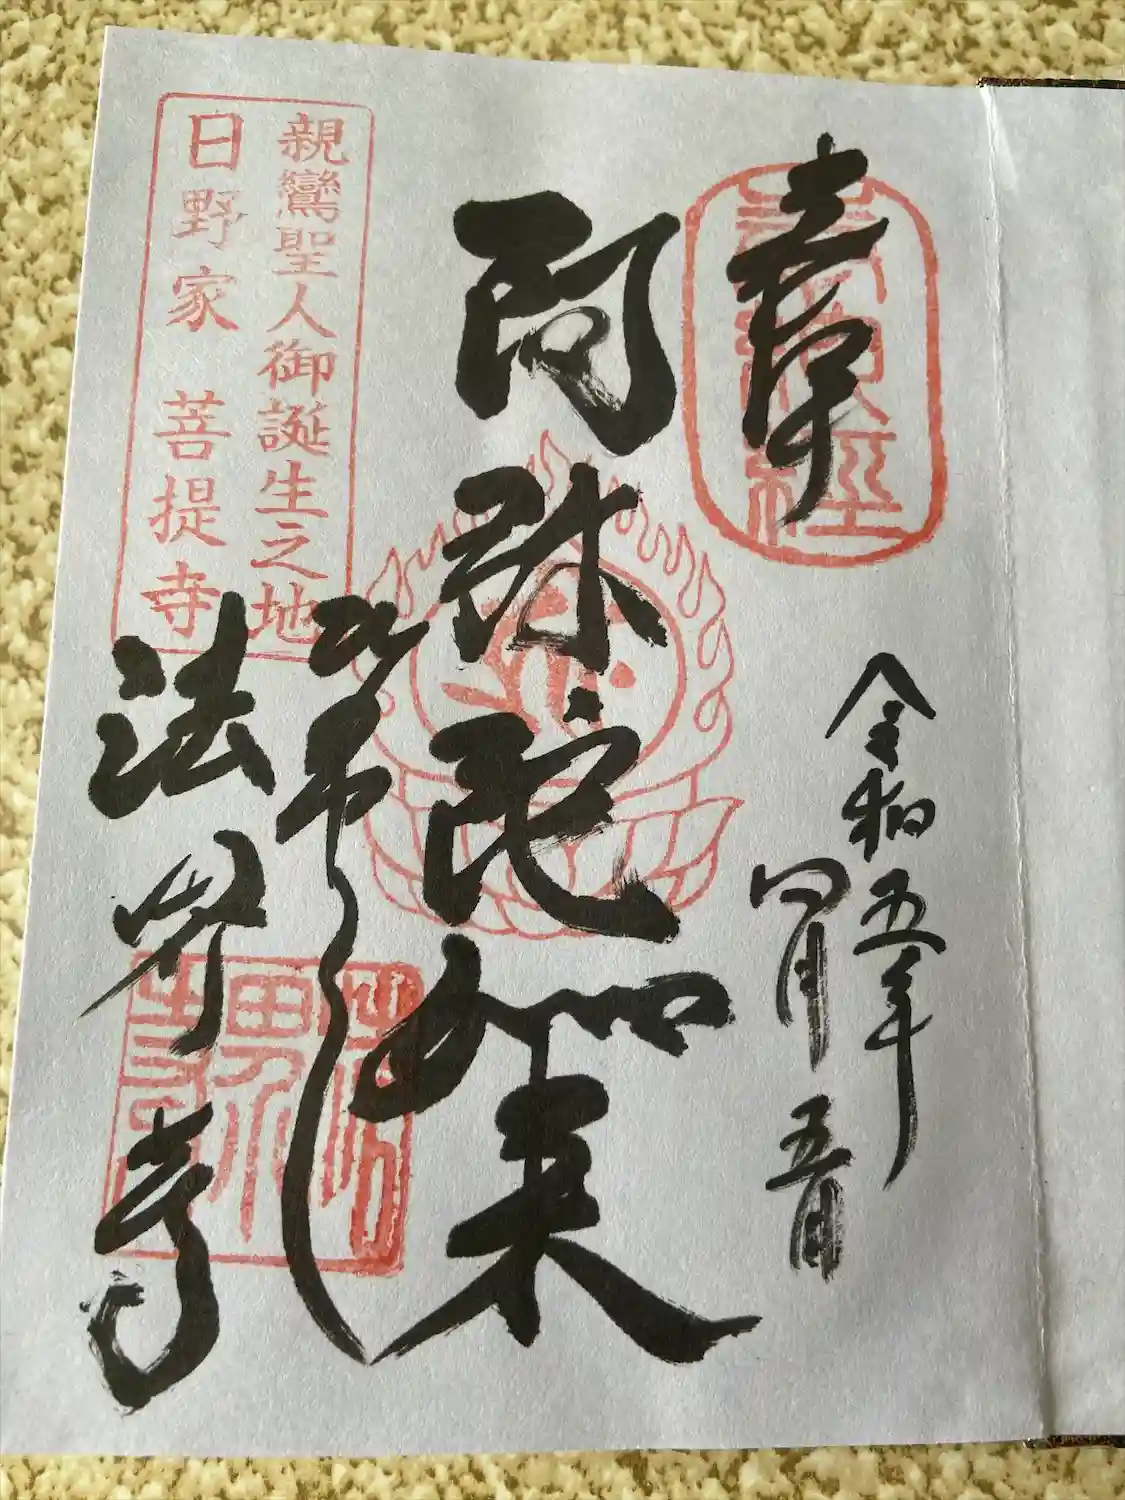 奉拝
令和五年
四月五日
阿弥陀如来
法界寺
親鸞聖人御誕生之地
日野家 菩提寺